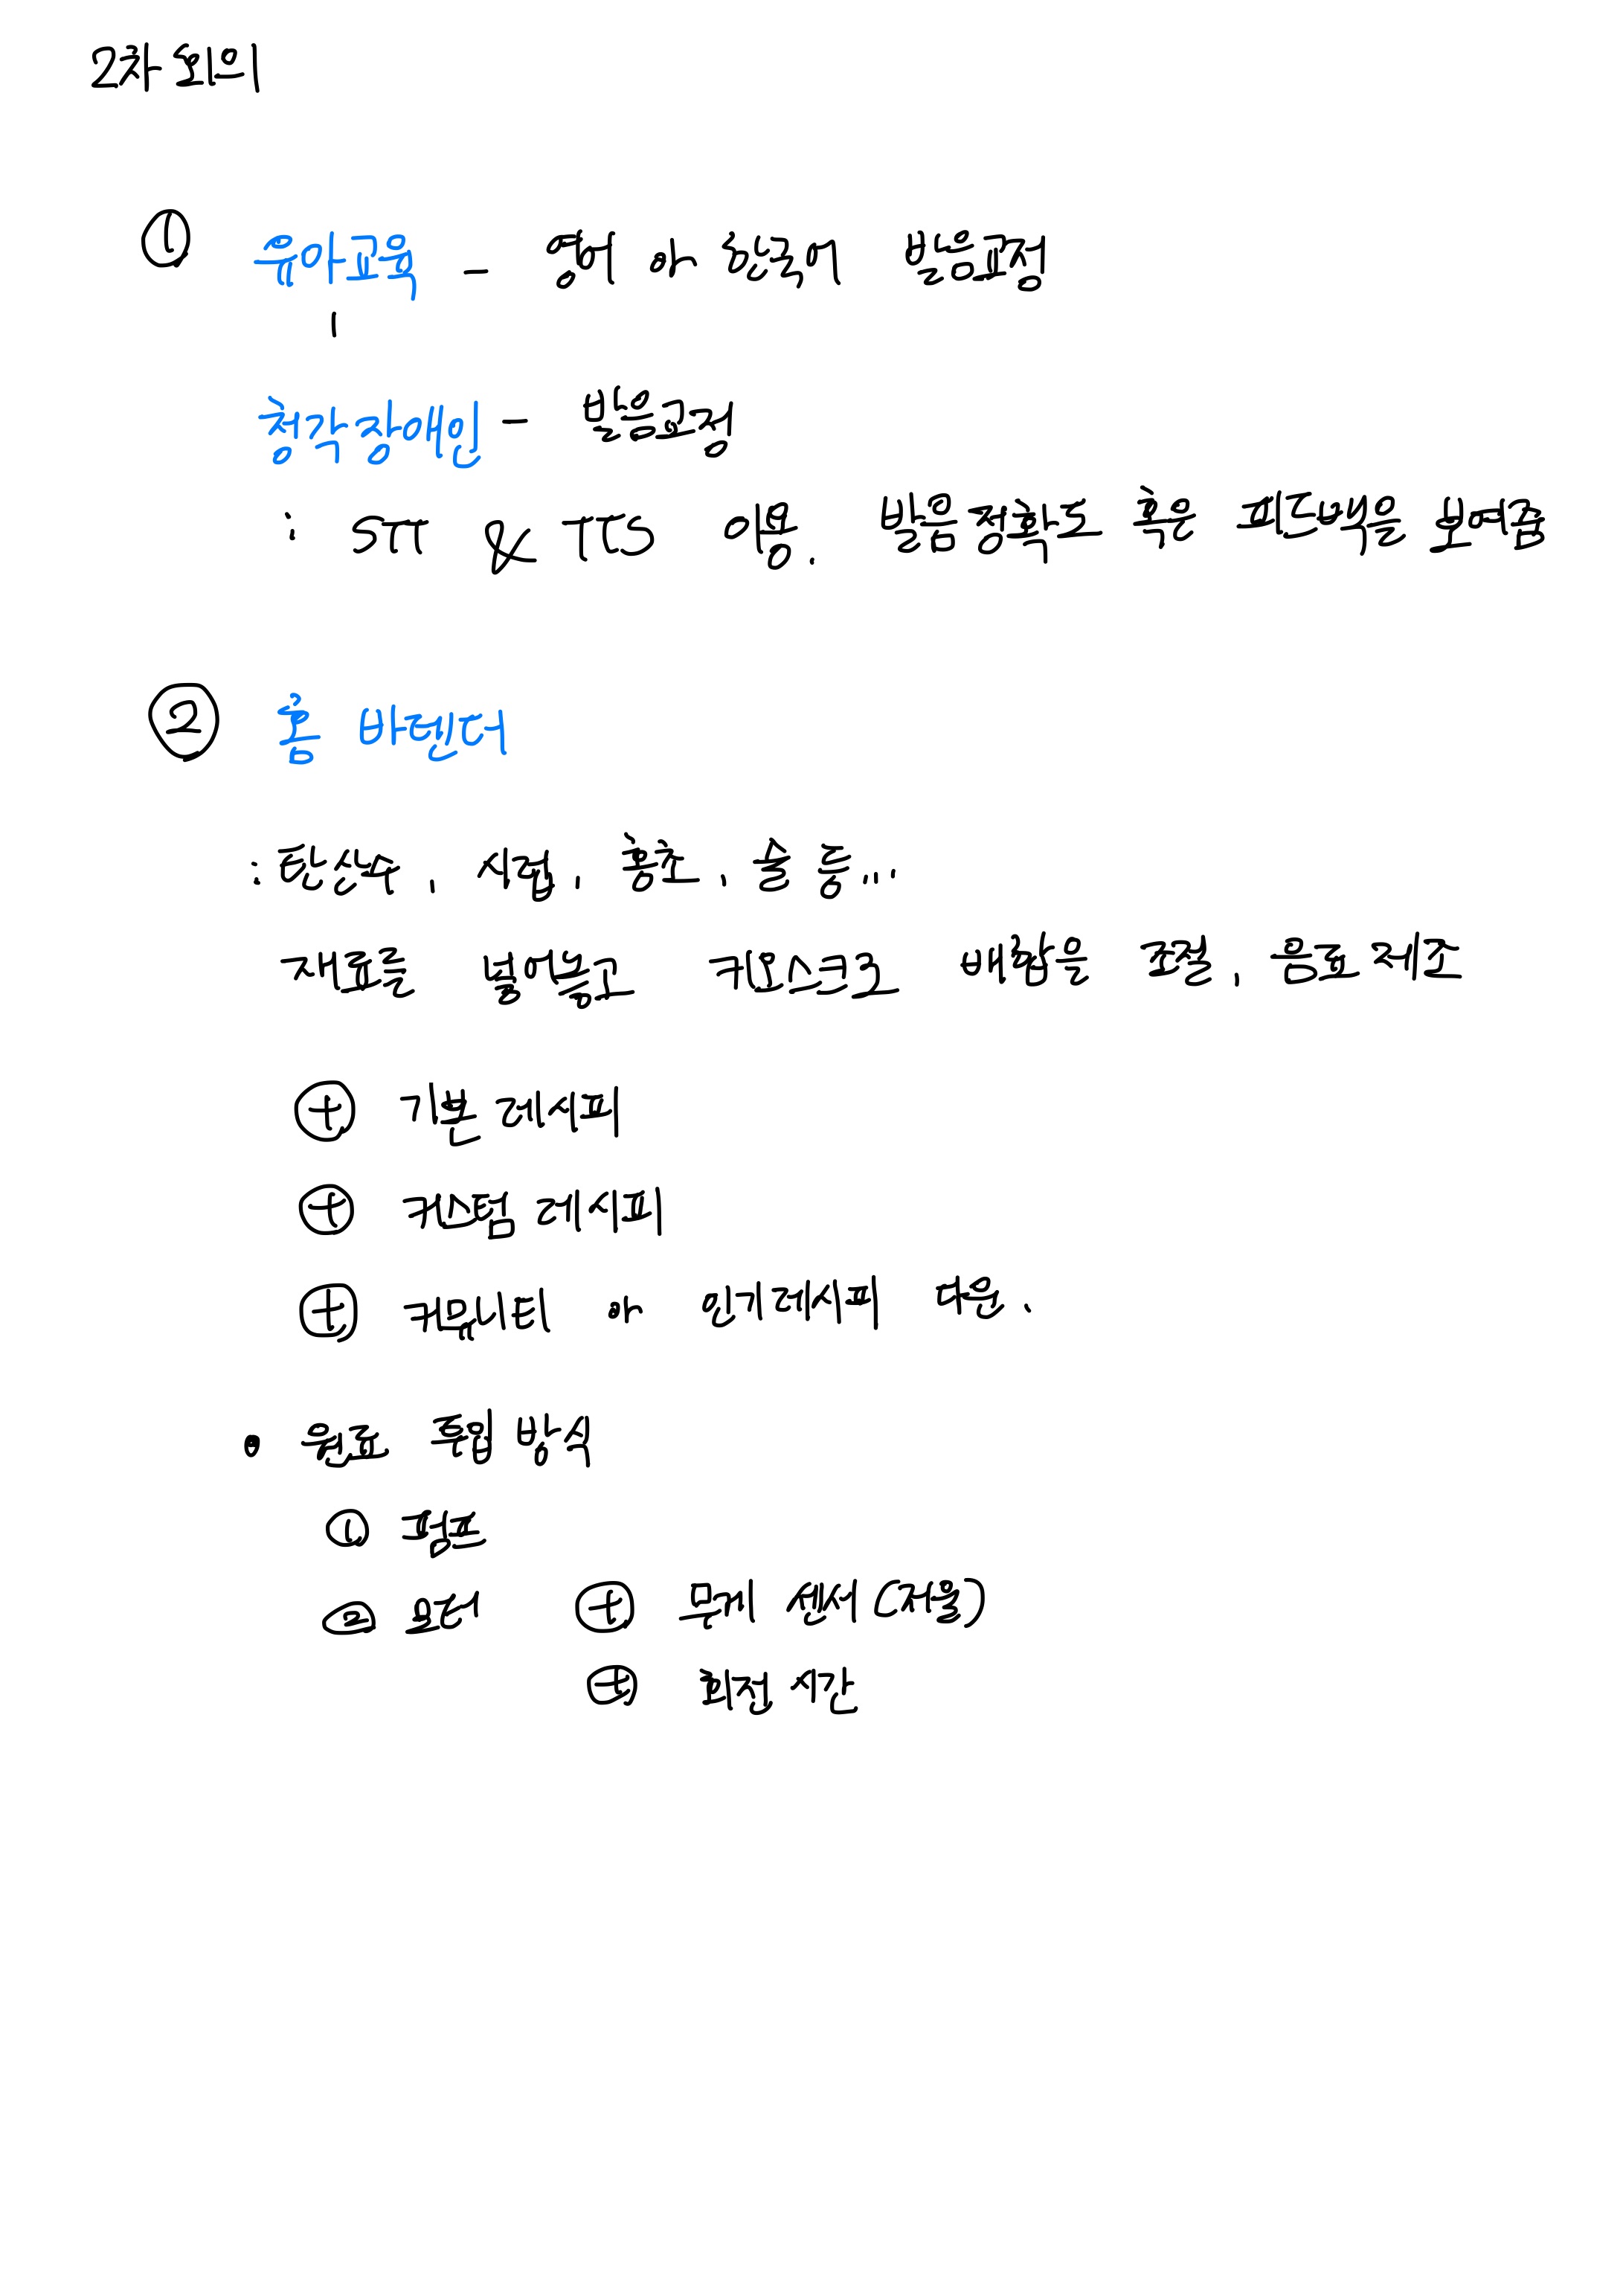 2차 회의
① 유아교육 - 영어 or 한국어 발음교정
청각장애인 - 발음교정
: STT & TTS 이용. 발음정확도 혹은 피드백을 보여줌
② 홈 바텐더
: 탄산수, 시럽, 홍초, 술 등...
재료를 넣어놓고 키오스크로 배합을 조절, 음료 제조
⊕ 기본 레시피
⊕ 커스텀 레시피
⊕ 커뮤니티 or 인기레시피 다운.
• 원료 투입 방식
① 펌프
② 모터 ⊕ 무게 센서 (저울)
⊕ 회전 시간